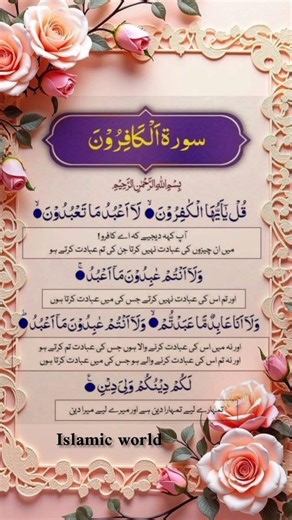 سورة اَلْكَافِرُوْنَ
بِسْمِ اللهِ الرَّحْمٰنِ الرَّحِيْمِ
قُلْ يٰۤاَيُّهَا الْكٰفِرُوْنَ ۙ لَاۤ اَعْبُدُ مَا تَعْبُدُوْنَ ۙ
آپ کہہ دیجیے کہ اے کافرو!
میں ان چیزوں کی عبادت نہیں کرتا جن کی تم عبادت کرتے ہو
وَلَاۤ اَنْتُمْ عٰبِدُوْنَ مَاۤ اَعْبُدُ ۚ
اور تم اس کی عبادت نہیں کرتے جس کی میں عبادت کرتا ہوں
وَلَاۤ اَنَا عَابِدٌ مَّا عَبَدْتُّمْ ۙ وَلَاۤ اَنْتُمْ عٰبِدُوْنَ مَاۤ اَعْبُدُ ؕ
اور نہ میں اس کی عبادت کرنے والا ہوں جس کی عبادت تم کرتے ہو
اور نہ تم اس کی عبادت کرنے والے ہو جس کی میں عبادت کرتا ہوں
لَكُمْ دِيْنُكُمْ وَلِيَ دِيْنِ ۠
تمہارے لیے تمہارا دین ہے اور میرے لیے میرا دین
Islamic world